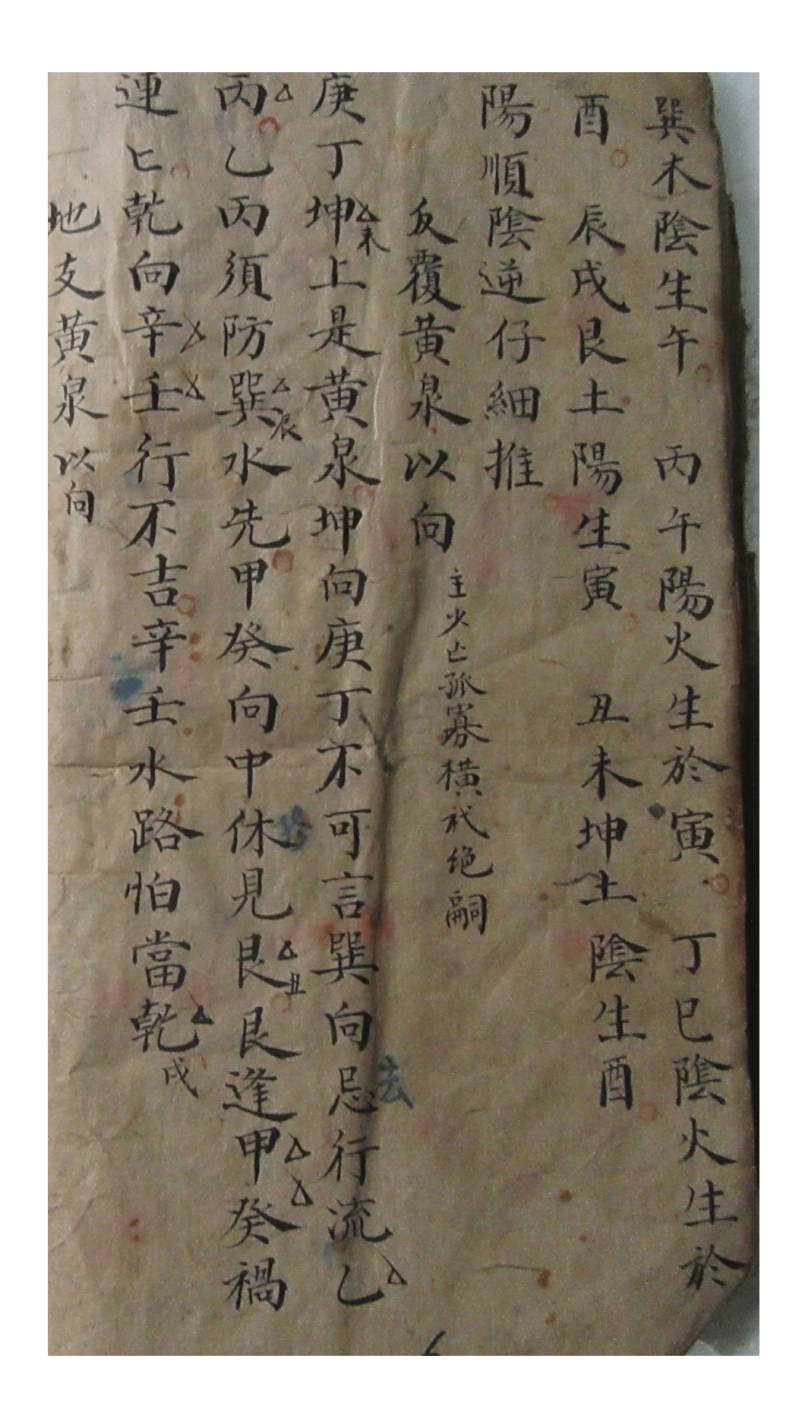 巽木陰生午 丙午陽火生於寅 丁巳陰火生於
酉 辰戌艮土陽生寅 丑未坤土陰生酉
陽順陰逆仔細推
反覆黄泉以向 主火亡孤寡横夭绝嗣
庚丁坤未上是黄泉坤向庚丁不可言巽向忌行流乙
去
丙乙丙須防巽辰水先甲癸向中休見艮丑艮逢甲癸禍
連匕乾向辛壬行不吉辛壬水路怕當乾戌
地支黄泉以向